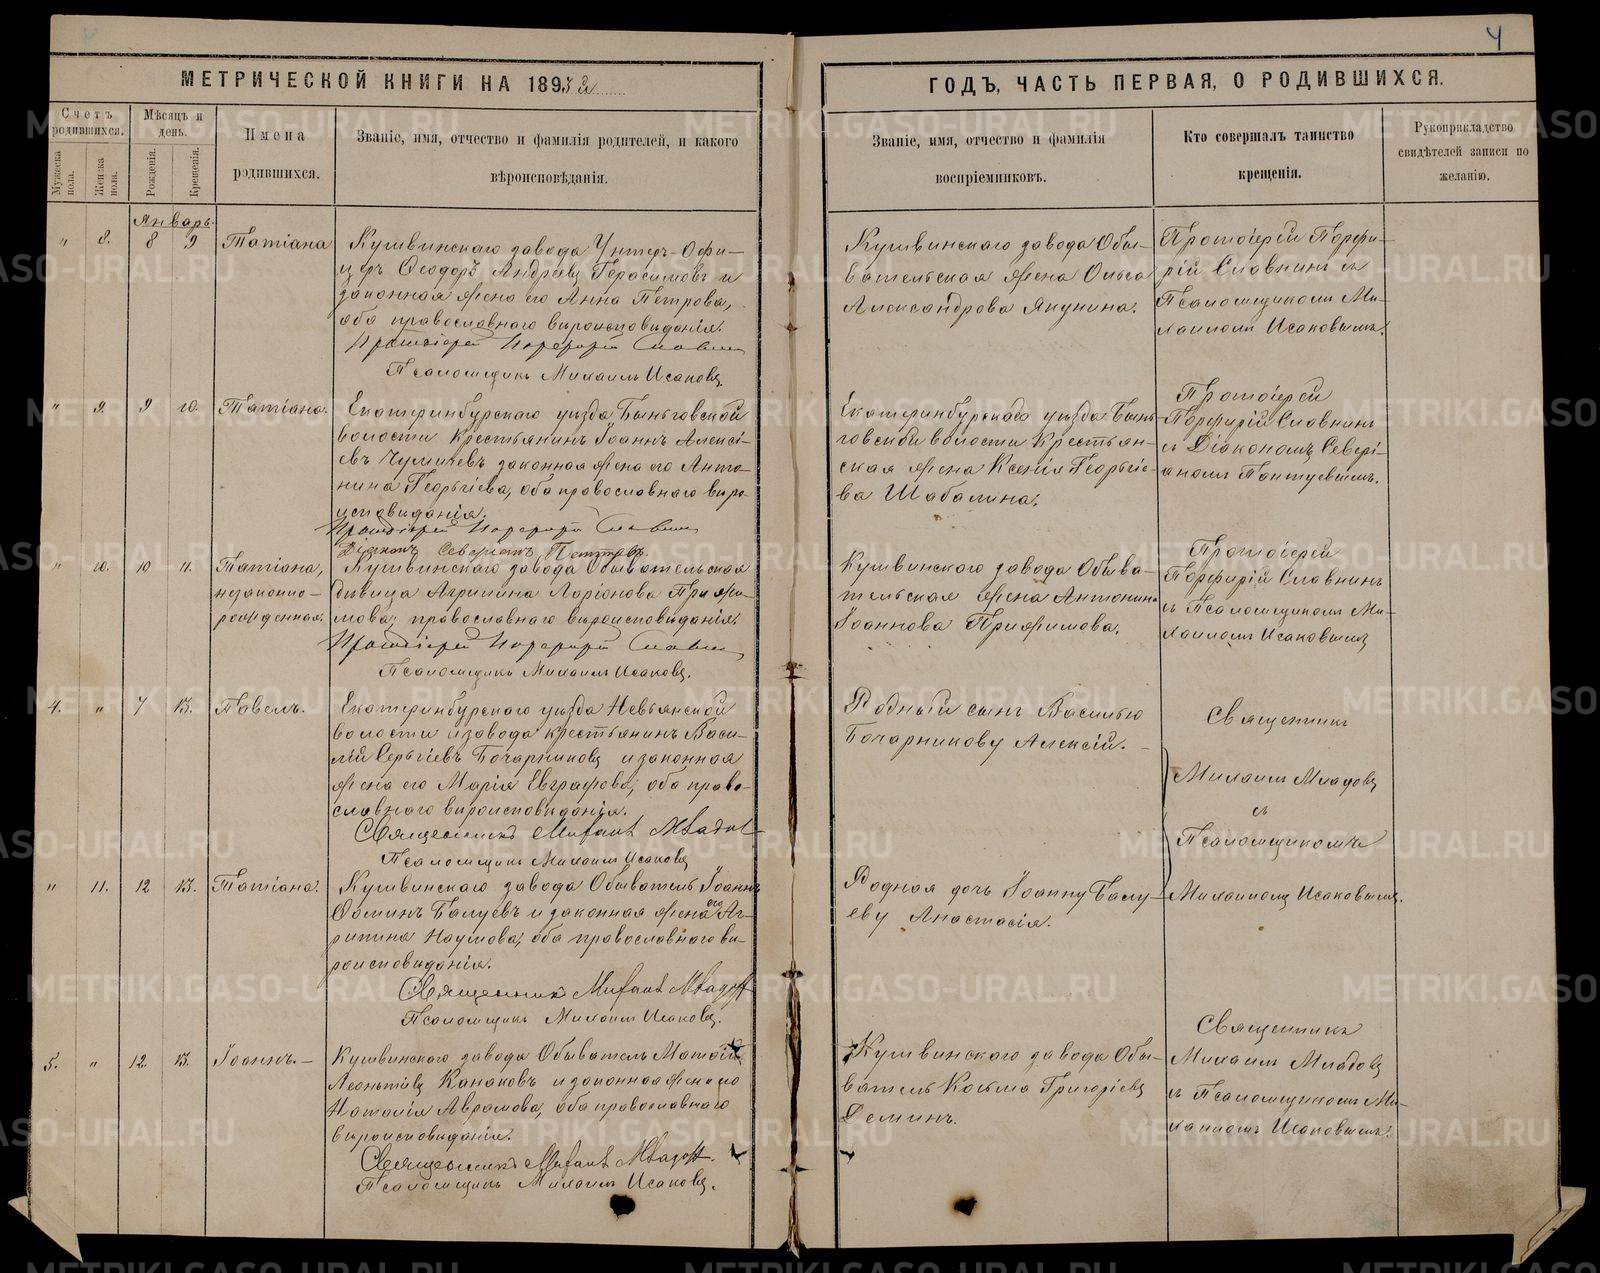 4
МЕТРИЧЕСКОЙ КНИГИ НА 1893 й
ГОДЪ, ЧАСТЬ ПЕРВАЯ, О РОДИВШИХСЯ.
Счетъ родившихся.
Мужеска пола.
Женска пола.
Мѣсяцъ и день.
Рожденія.
Крещенія.
Имена родившихся.
Званіе, имя, отчество и фамилія родителей, и какого вѣроисповѣданія.
Званіе, имя, отчество и фамилія воспріемниковъ.
Кто совершалъ таинство крещенія.
Рукоприкладство свидѣтелей записи по желанію.
Январь.
" 8. 8 9 Татіана
Кушвинскаго завода Унтеръ-Офи-
церъ Ѳеодоръ Андреевъ Герасимовъ и
законная жена его Анна Петрова,
оба православнаго вѣроисповѣданія.
Протоіерей Порфирій Славнинъ
Псаломщикъ Михаилъ Исаковъ
Кушвинскаго завода Обы-
вательская жена Ольга
Александрова Якунина.
Протоіерей Порфи-
рій Славнинъ съ
Псаломщикомъ Ми-
хаиломъ Исаковымъ.
" 9. 9 10. Татіана.
Екатеринбурскаго уѣзда Быньговской
волости Крестьянинъ Іоаннъ Алексѣ-
евъ законная жена его Анто-
нина Георгіева, оба православнаго вѣро-
исповѣданія.
Протоіерей Порфирій Славнинъ
Діаконъ Северіанъ
Екатеринбурскаго уѣзда Бынь-
говской волости Крестьян-
ская жена Ксенія Георгіе-
ва Шабалина.
Протоіерей
Порфирій Славнинъ
съ Діакономъ Севері-
аномъ
" 10. 10 11. Татіана,
незаконно-
рожденная.
Кушвинскаго завода Обывательская
дѣвица Агрипина Ларіонова Прижи-
мова, православнаго вѣроисповѣданія.
Протоіерей Порфирій Славнинъ
Псаломщикъ Михаилъ Исаковъ.
Кушвинскаго завода Обыва-
тельская жена Антонина
Іоаннова Прижимова.
Протоіерей
Порфирій Славнинъ
съ Псаломщикомъ Ми-
хаиломъ Исаковымъ
4. " 7 13. Павелъ.
Екатеринбурскаго уѣзда Невьянской
волости и завода крестьянинъ Васи-
лій Сергіевъ Бочарниковъ и законная
жена его Марія Евграфова, оба право-
славнаго вѣроисповѣданія.
Священникъ Михаилъ Младовъ
Псаломщикъ Михаилъ Исаковъ
Родный сынъ Василью
Бочарникову Алексій.
Священникъ
Михаилъ Младовъ
съ
Псаломщикомъ
Михаиломъ Исаковымъ.
" 11. 12 13. Татіана.
Кушвинскаго завода Обыватель Іоаннъ
Ѳоминъ Балуевъ и законная жена его Аг-
рипина Наумова, оба православнаго вѣ-
роисповѣданія.
Священникъ Михаилъ Младовъ
Псаломщикъ Михаилъ Исаковъ.
Родная дочь Іоанну Балу-
еву Анастасія.
5. " 12. 13. Іоаннъ.
Кушвинскаго завода Обыватель Матѳій
Леонтіевъ Канаковъ и законная жена его
Наталія Аврамова, оба православнаго
вѣроисповѣданія.
Священникъ Михаилъ Младовъ.
Псаломщикъ Михаилъ Исаковъ.
Кушвинскаго завода Обы-
ватель Косьма Григоріевъ
Деминъ.
Священникъ
Михаилъ Младовъ
съ Псаломщикомъ Ми-
хаиломъ Исаковымъ.
METRIKI.GASO-URAL.RU